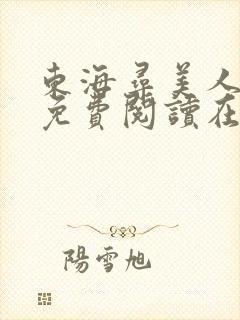 東海尋美人
免費閱讀在
陽雪旭